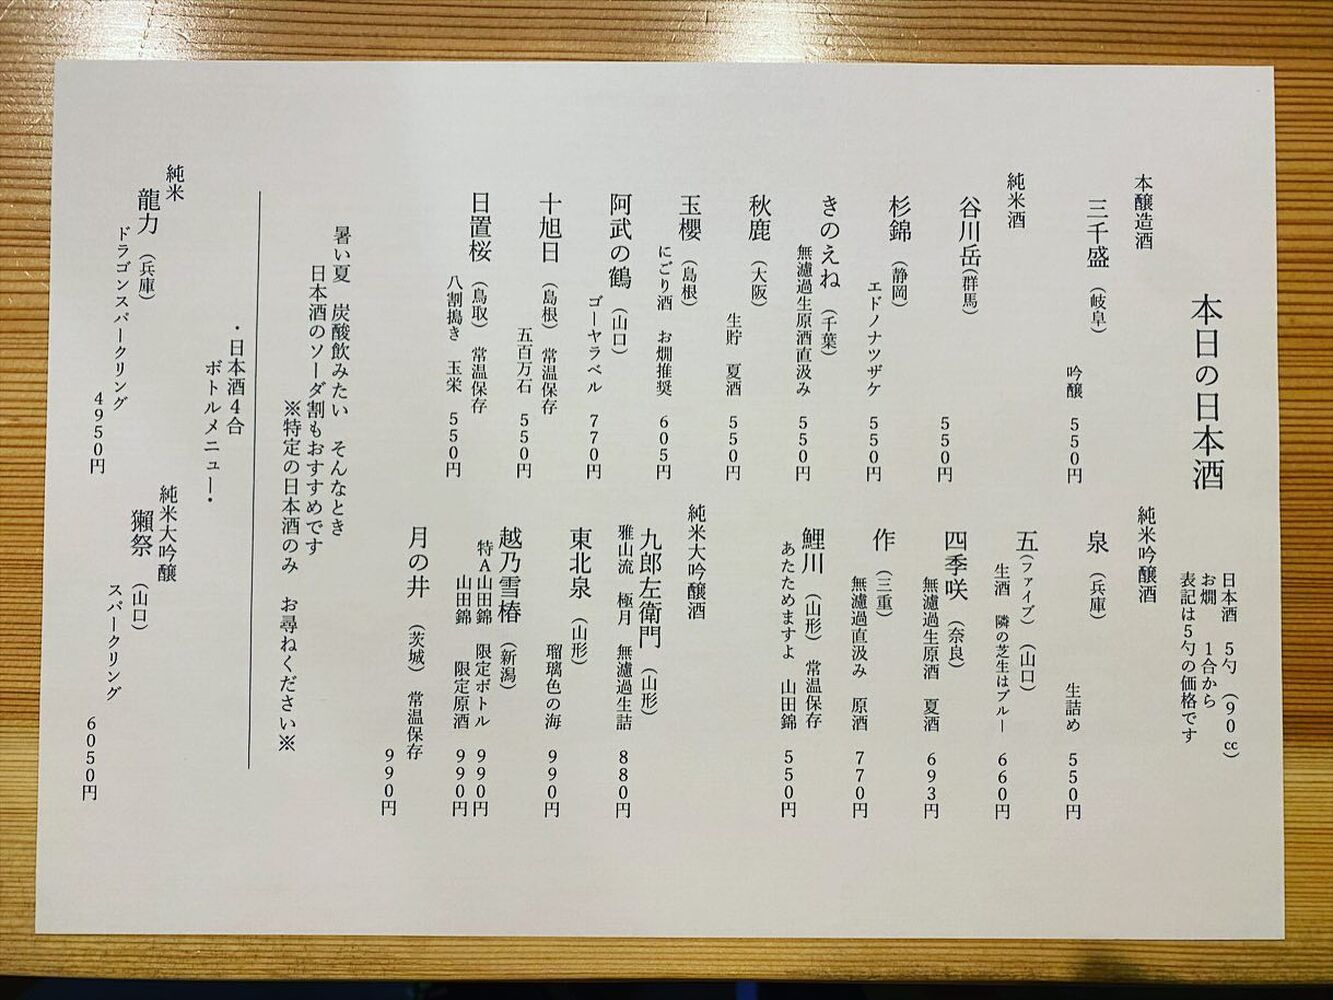 本日の日本酒
日本酒 5勺（90㏄）
お燗 1合から
表記は5勺の価格です
本醸造酒
三千盛（岐阜）
吟醸 550円
純米酒
谷川岳（群馬）
550円
杉錦（静岡）
エドノナツザケ 550円
きのえね（千葉）
無濾過生原酒直汲み 550円
秋鹿（大阪）
生貯 夏酒 550円
玉櫻（島根）
にごり酒 お燗推奨 605円
阿武の鶴（山口）
ゴーヤラベル 770円
十旭日（島根）常温保存
五百万石 550円
日置桜（鳥取）常温保存
八割搗き 玉栄 550円
純米吟醸酒
泉（兵庫）
生詰め 550円
五（ファイブ）（山口）
生酒 隣の芝生はブルー 660円
四季咲（奈良）
無濾過生原酒 夏酒 693円
作（三重）
無濾過直汲み 原酒 770円
鯉川（山形）常温保存
あたためますよ 山田錦 550円
純米大吟醸酒
九郎左衛門（山形）
雅山流 極月 無濾過生詰 880円
東北泉（山形）
瑠璃色の海 990円
越乃雪椿（新潟）
特A山田錦 限定ボトル 990円
山田錦 限定原酒 990円
月の井（茨城）常温保存
990円
暑い夏 炭酸飲みたい そんなとき
日本酒のソーダ割もおすすめです
※特定の日本酒のみ お尋ねください※
・日本酒4合
ボトルメニュー・
純米
龍力（兵庫）
ドラゴンスパークリング
4950円
純米大吟醸
獺祭（山口）
スパークリング
6050円